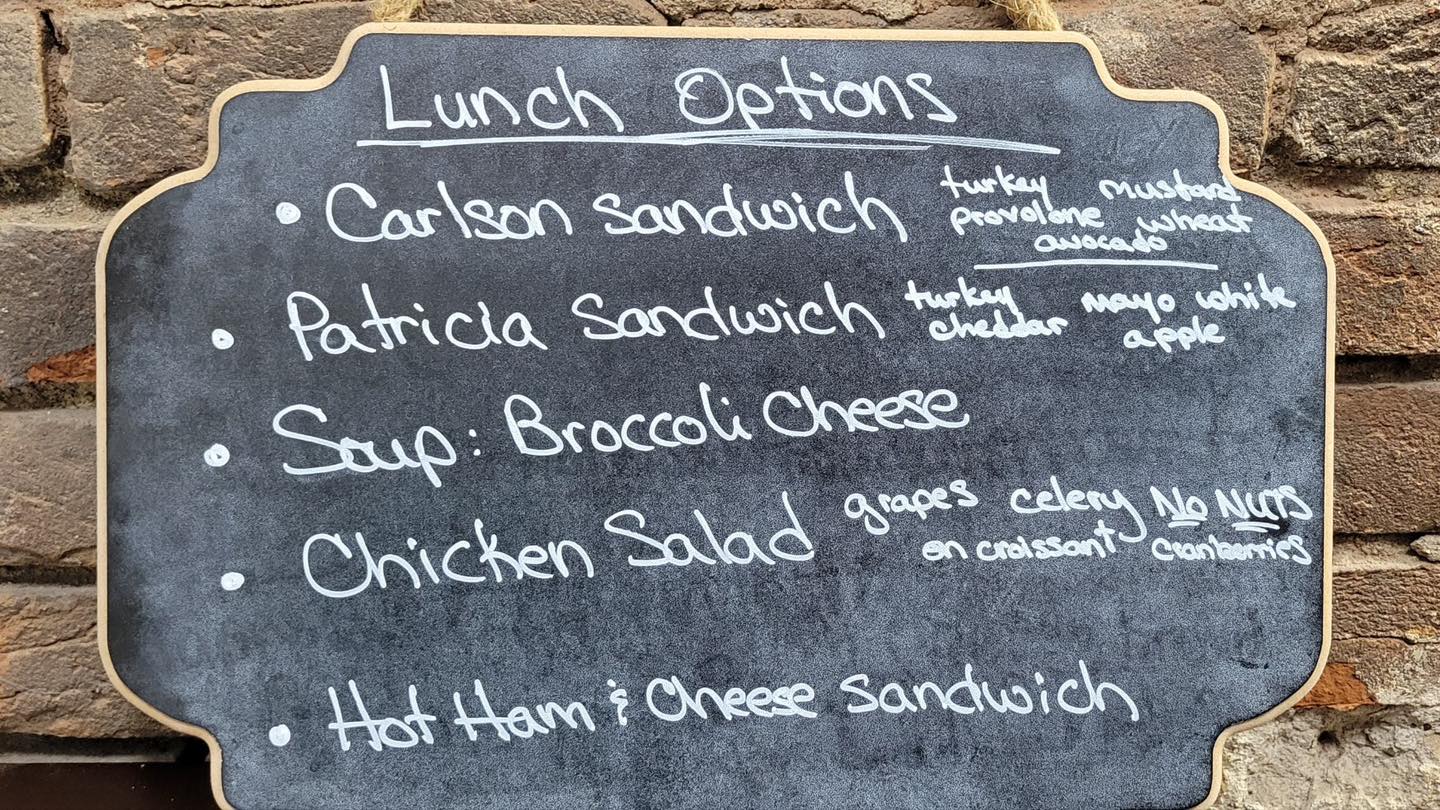 Lunch Options
• Carlson Sandwich turkey mustard
provolone wheat
avocado
• Patricia Sandwich turkey mayo white
cheddar apple
• Soup: Broccoli Cheese
• Chicken Salad grapes celery No NUTS
on croissant cranberries
• Hot Ham & Cheese Sandwich